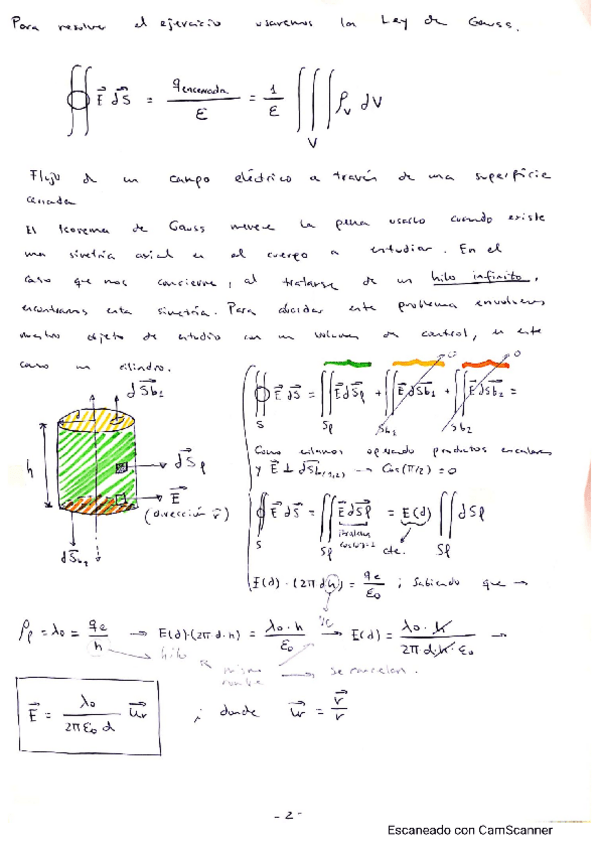 Para resolver el ejercicio usaremos la Ley de Gauss.
∯ E⃗ dS⃗ = q encerrada / ε = 1/ε ∭_V ρ_v dV
Flujo de un campo eléctrico a través de una superficie
cerrada
El teorema de Gauss merece la pena usarlo cuando existe
una simetría axial en el cuerpo a estudiar. En el
caso que nos concierne, al tratarse de un hilo infinito,
encontramos esta simetría. Para abordar este problema envolvemos
nuestro objeto de estudio con un volumen de control, en este
caso un cilindro.
dS⃗b₁
h
dS⃗ρ
E⃗
(dirección r⃗)
dS⃗b₂
∯_S E⃗ dS⃗ = ∬_Sρ E⃗ dS⃗ρ + ∬_Sb₁ E⃗ dS⃗b₁ + ∬_Sb₂ E⃗ dS⃗b₂ =
0
0
Como estamos operando productos escalares
y E⃗ ⊥ dS⃗b(1,2) → Cos(π/2) = 0
∯_S E⃗ dS⃗ = ∬_Sρ E⃗ dS⃗ρ = E(d) ∬_Sρ dSρ
cte.
E(d) · (2π d h) = qe/ε₀ ; Sabiendo que →
ρρ = λ₀ = qe/h → E(d)·(2π d·h) = λ₀·h/ε₀ → E(d) = λ₀·h / 2π d·h·ε₀ →
hilo
mismo
se cancelan.
E⃗ = λ₀ / 2πε₀ d u⃗r ; donde u⃗r = r⃗/r
- 2 -
Escaneado con CamScanner